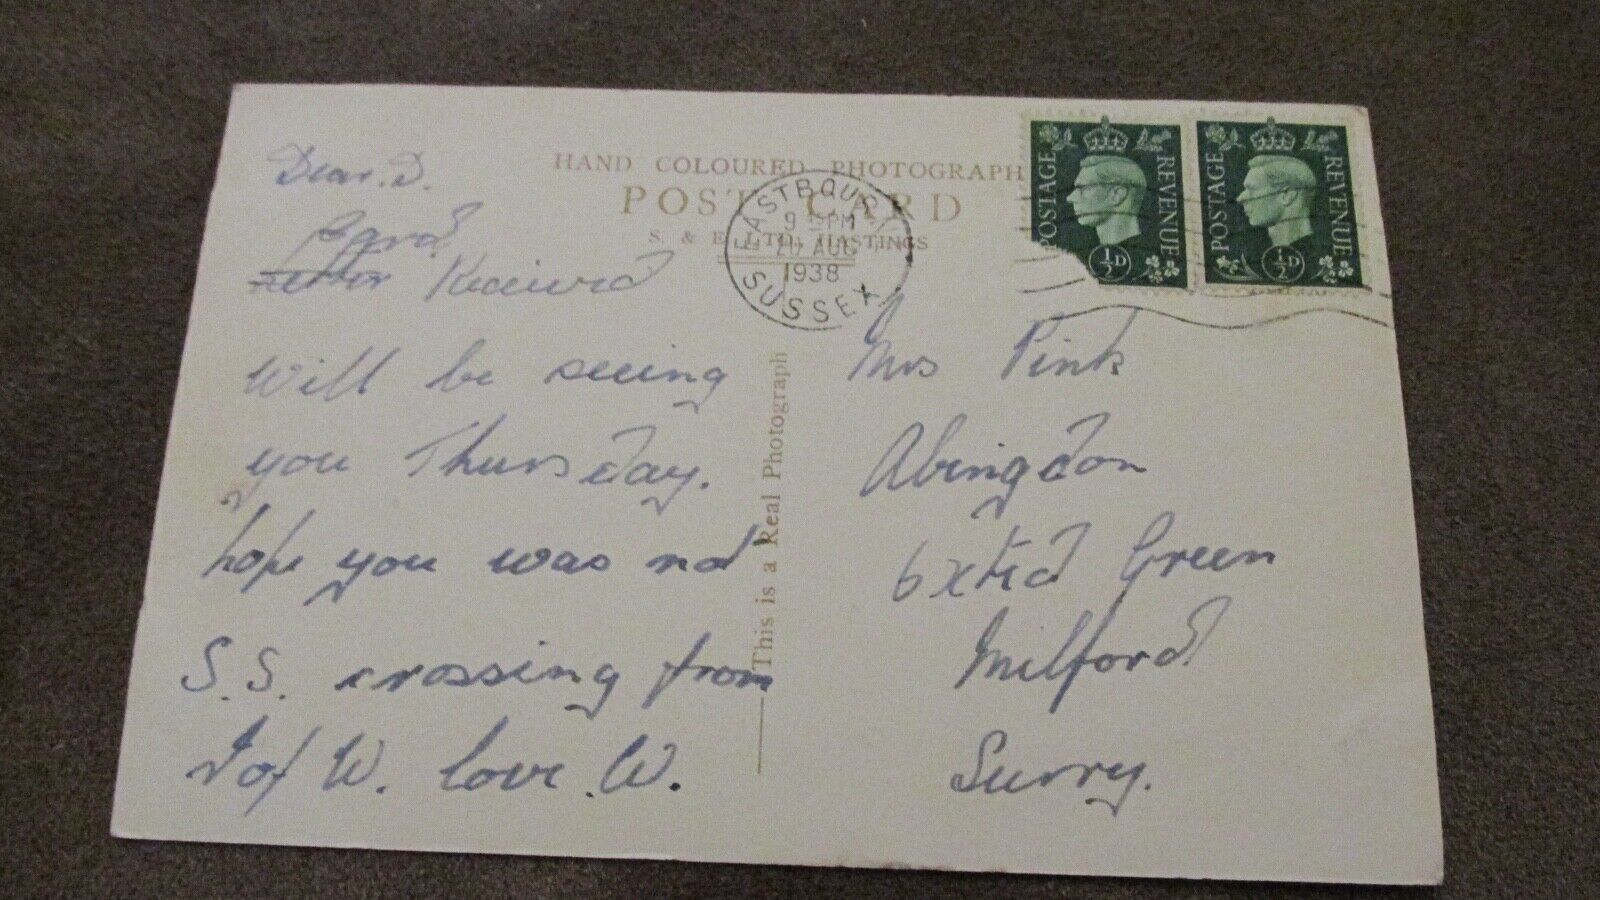 Dear. D.
Card
letter Received
will be seeing
you Thursday.
hope you was not
S.S. crossing from
I of W. love. W.
HAND COLOURED PHOTOGRAPH
POST CARD
S. & E. LTD. HASTINGS
EASTBOURNE
9 PM
20 AUG
1938
SUSSEX
This is a Real Photograph
POSTAGE REVENUE
½D
POSTAGE REVENUE
½D
Mrs Pink
Abingdon
Green
Milford
Surry.